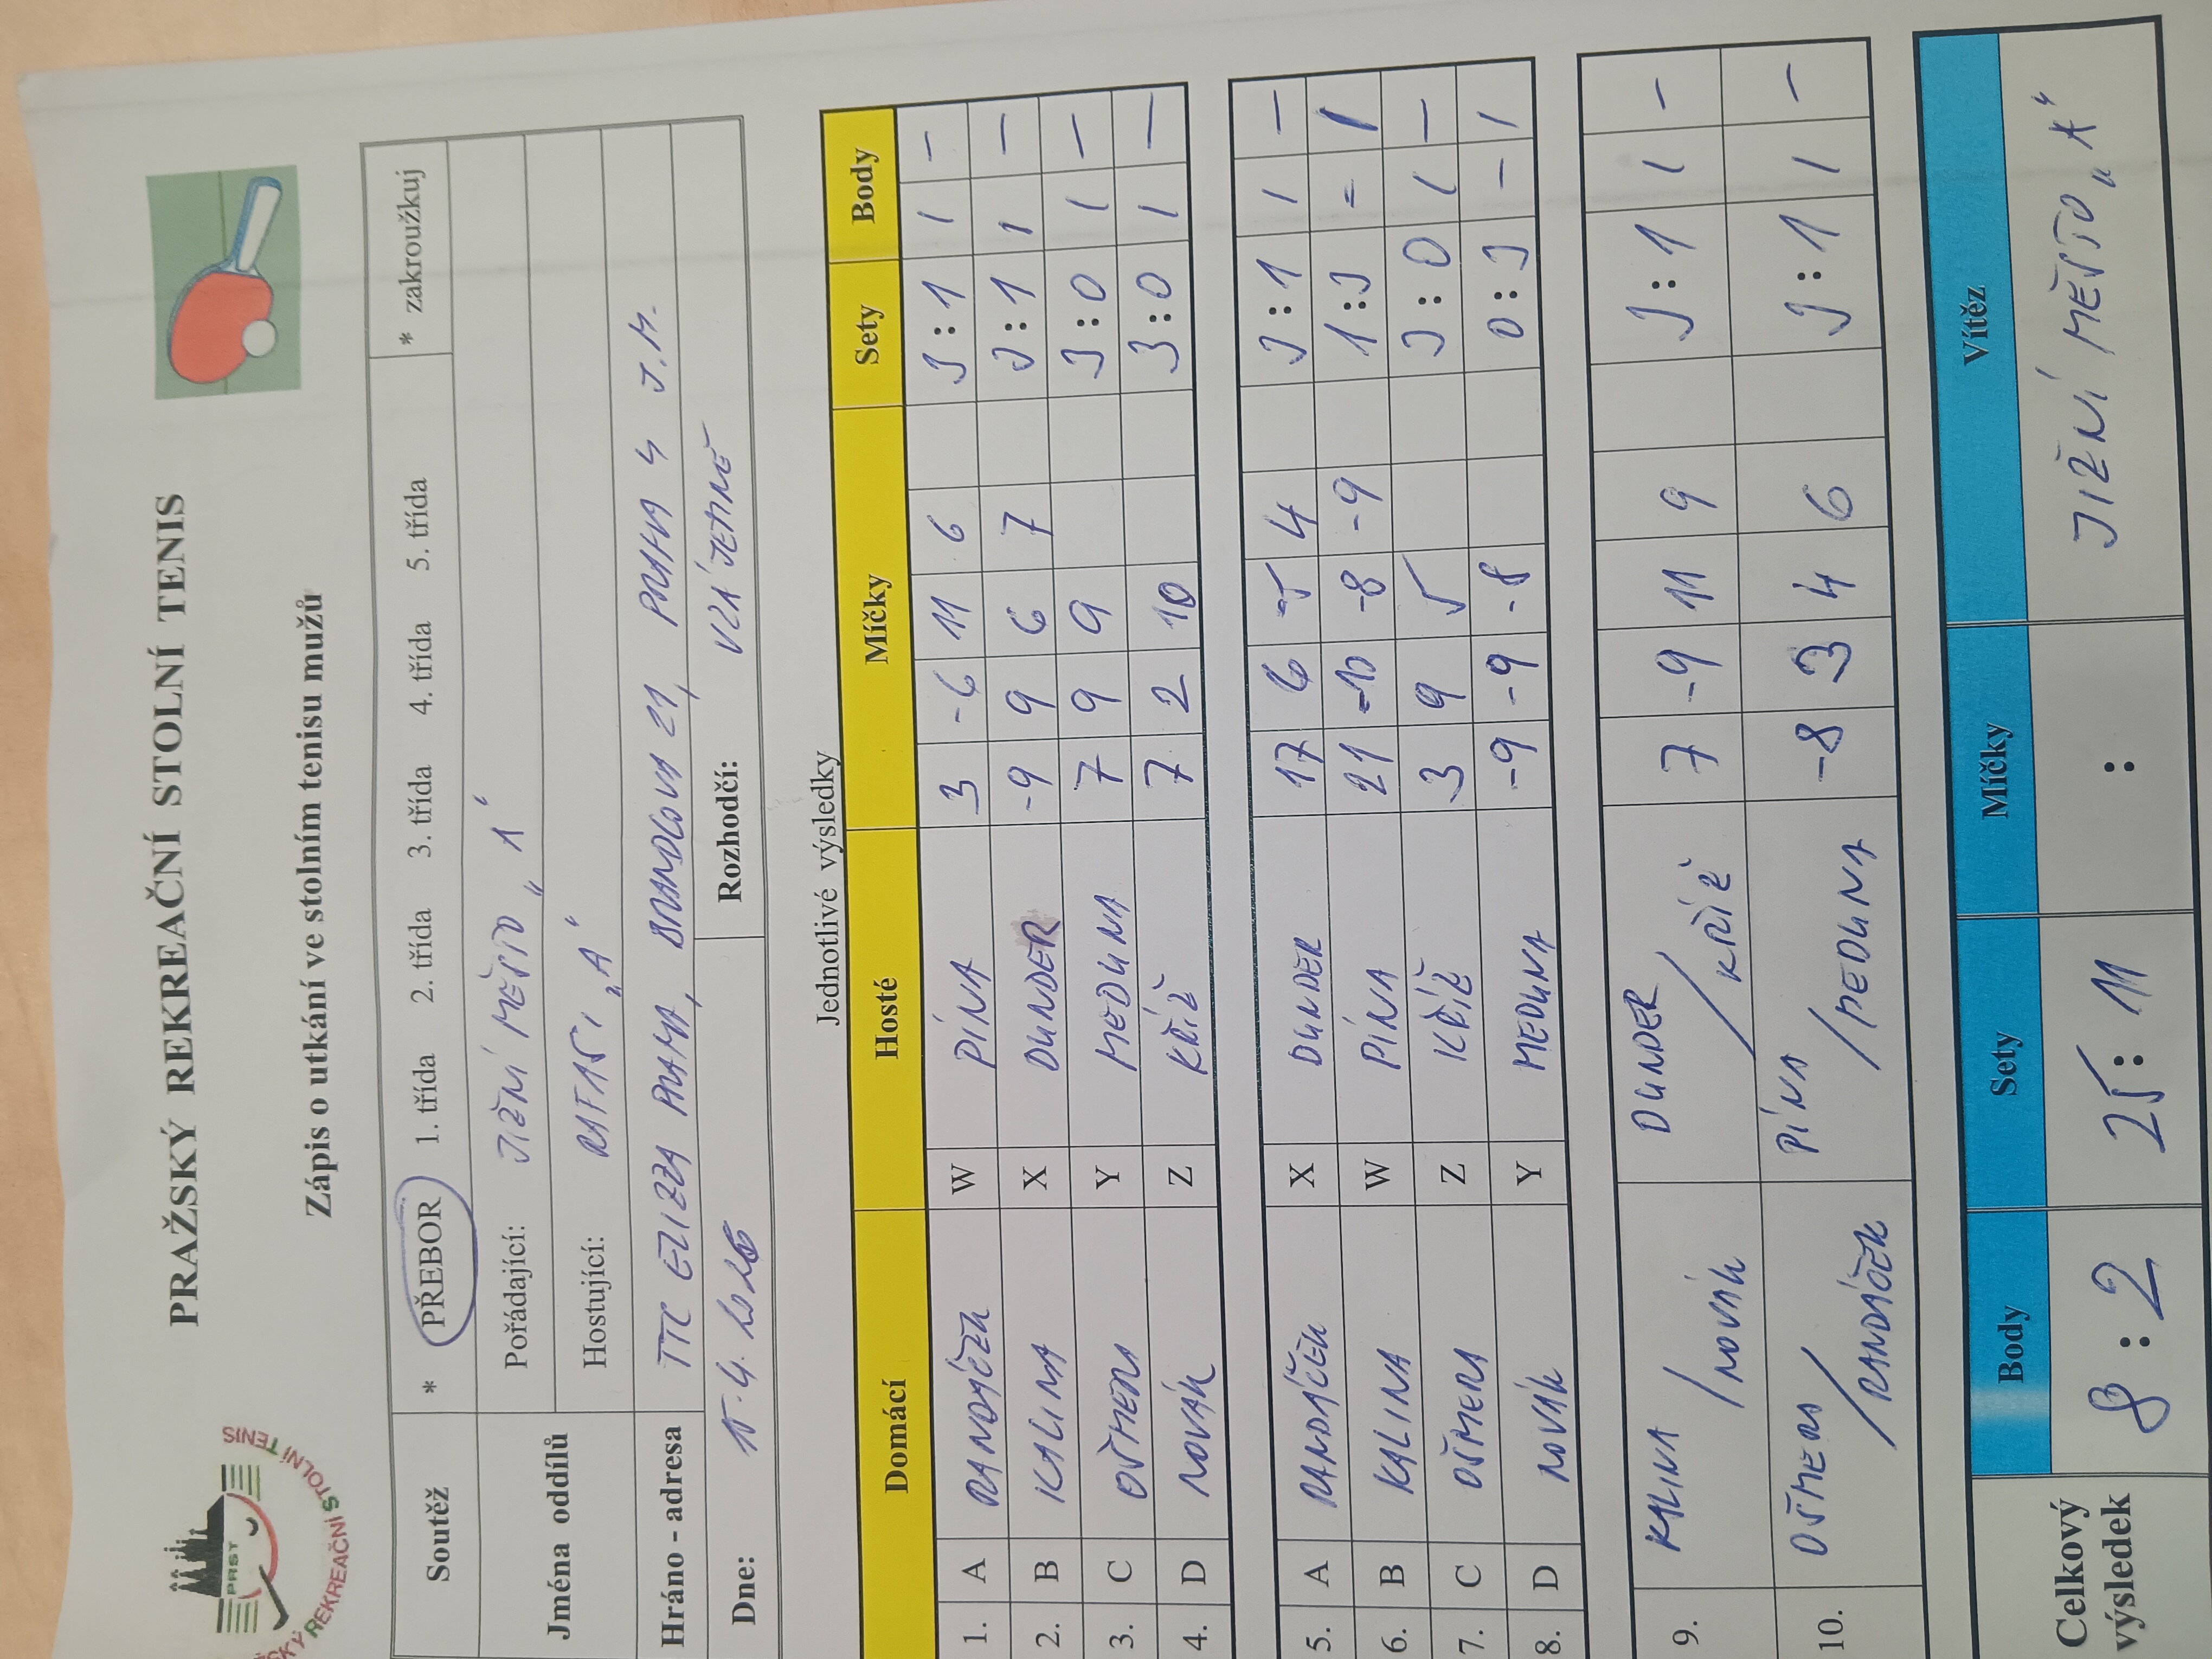 PRAŽSKÝ REKREAČNÍ STOLNÍ TENIS
PRST
REKREAČNÍ STOLNÍ TENIS
Zápis o utkání ve stolním tenisu mužů
Soutěž * PŘEBOR 1. třída 2. třída 3. třída 4. třída 5. třída * zakroužkuj
Jména oddílů
Pořádající: JIŽNÍ MĚSTO „A“
Hostující: RAFANI „A“
Hráno - adresa TTC ELIZZA PRAHA, BRANDLOVA 21, PRAHA 4 J.M.
Dne: Rozhodčí: VZÁJEMNĚ
Jednotlivé výsledky
Domácí Hosté Míčky Sety Body
1. A RANDÁČEK W PÍNA 3 -6 11 6 3:1 1 –
2. B KALINA X DUNDER -9 9 6 7 3:1 1 –
3. C OŠMERA Y MEDUNA 7 9 9 3:0 1 –
4. D NOVÁK Z KŘÍŽ 7 2 10 3:0 1 –
5. A RANDÁČEK X DUNDER 17 6 -5 4 3:1 1 –
6. B KALINA W PÍNA 21 -10 -8 -9 1:3 – 1
7. C OŠMERA Z KŘÍŽ 3 9 5 3:0 1 –
8. D NOVÁK Y MEDUNA -9 -9 -8 0:3 – 1
9. KALINA / NOVÁK DUNDER / KŘÍŽ 7 -9 11 9 3:1 1 –
10. OŠMERA / RANDÁČEK PÍNA / MEDUNA -8 3 4 6 3:1 1 –
Celkový výsledek
Body Sety Míčky Vítěz
8 : 2 25 : 11 : JIŽNÍ MĚSTO „A“